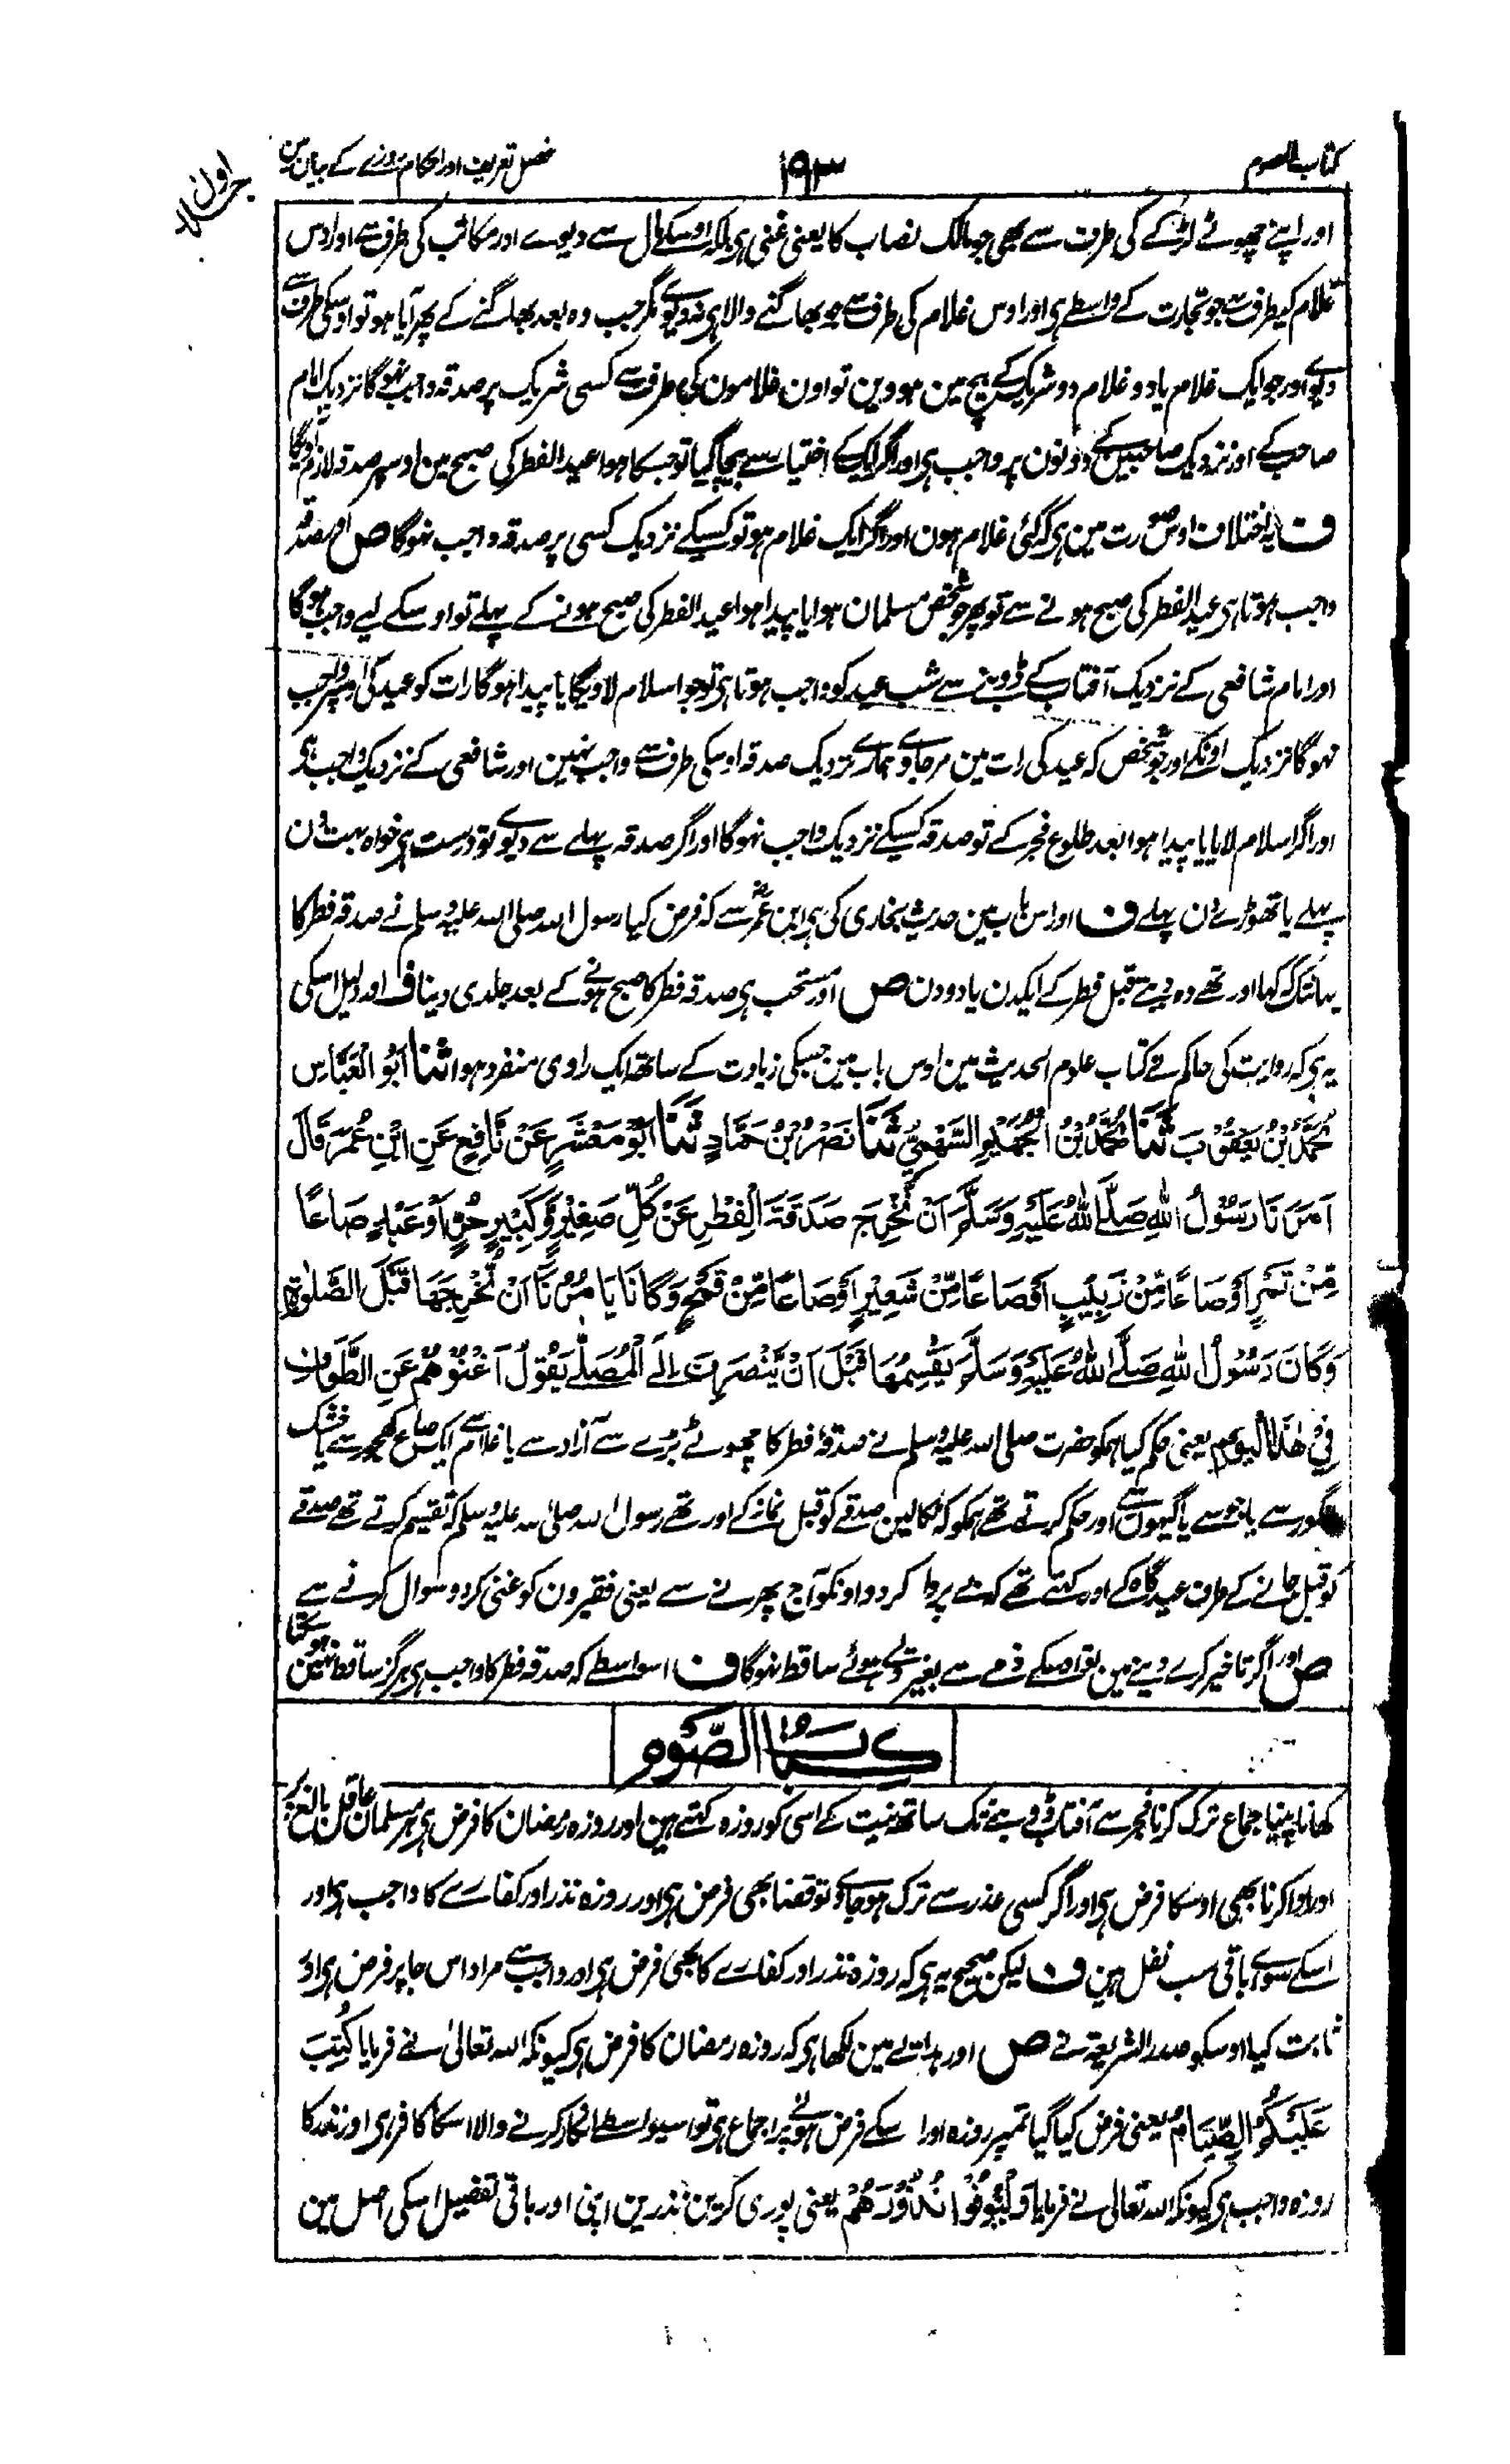 کتاب الصوم
۱۹۳
فصل تعریف اور احکام روزے کے بیان مین
جلد اول
اور اپنے چھوٹے لڑکے کی طرف سے بھی جو مالک نصاب کا یعنی غنی ہی بلکہ اوسکے مال سے دیوے اور مکاتب کی طرف سے اور اوس
غلام کیطرف سے جو تجارت کے واسطے ہی اور اوس غلام کی طرف سے جو بھاگنے والا ہی ندیوے مگر جب وہ بعد بھاگنے کے پھر آیا ہو تو اوسکی طرف سے
دیوے اور جو ایک غلام یا دو غلام دو شریک کے بیچ مین ہووین تو اون غلامون کی طرف سے کسی شریک پر صدقہ واجب نہوگا نزدیک امام
صاحب کے اور نزدیک صاحبین کے دونون پر واجب ہی اور اگر ایک کے اختیار سے بیچا گیا تو جب کا ہوا عید الفطر کی صبح مین اوسپر صدقہ لازم آویگا
ف یہ اختلاف اوس صورت مین ہی کہ کئی غلام ہون اور اگر ایک غلام ہو تو کسیکے نزدیک کسی پر صدقہ واجب نہوگا ص اور صدقہ
واجب ہوتا ہی عید الفطر کی صبح ہونے سے تو پھر جو شخص مسلمان ہوا یا پیدا ہوا عید الفطر کی صبح ہونے کے پہلے تو اوسکے لیے واجب ہوگا
اور امام شافعی کے نزدیک آفتاب کے ڈوبنے سے شب عید کو واجب ہوتا ہی تو جو اسلام لاویگا یا پیدا ہوگا رات کو عید کی اوسپر واجب
نہوگا نزدیک اونکے اور جو شخص کہ عید کی رات مین مرجاوے ہمارے نزدیک صدقہ اوسکی طرف سے واجب نہین اور شافعی کے نزدیک واجب ہی
اور اگر اسلام لایا یا پیدا ہوا بعد طلوع فجر کے تو صدقہ کسیکے نزدیک واجب نہوگا اور اگر صدقہ پہلے سے دیوے تو درست ہی خواہ بہت دن
پہلے یا تھوڑے دن پہلے ف اور اس باب مین حدیث بخاری کی ہی ابن عمرؓ سے کہ فرض کیا رسول اللہ صلی اللہ علیہ وسلم نے صدقہ فطر کا
یہانتک کہ کہا اور تھے وہ دیتے قبل فطر کے ایکدن یا دو دن ص اور مستحب ہی صدقہ فطر کا صبح ہونے کے بعد جلدی دینا ف اور دلیل اسکی
یہ ہی کہ روایت کی حاکم نے کتاب علوم الحدیث مین اوس باب مین جسکی زیادت کے ساتھ ایک راوی منفرد ہوا ثَنَا اَبُو الْعَبَّاسِ
مُحَمَّدُ بْنُ یَعْقُوْبَ ثَنَا مُحَمَّدُ بْنُ الْجُهَیْمِ السَّهْمِیُّ ثَنَا نَصْرُ بْنُ حَمَّادٍ ثَنَا اَبُوْ مَعْشَرٍ عَنْ نَّافِعٍ عَنِ ابْنِ عُمَرَ قَالَ
اَمَرَنَا رَسُوْلُ اللهِ صَلَّی اللهُ عَلَیْهِ وَسَلَّمَ اَنْ نُّخْرِجَ صَدَقَةَ الْفِطْرِ عَنْ کُلِّ صَغِیْرٍ وَّکَبِیْرٍ حُرٍّ اَوْ عَبْدٍ صَاعًا
مِّنْ تَمْرٍ اَوْ صَاعًا مِّنْ زَبِیْبٍ اَوْ صَاعًا مِّنْ شَعِیْرٍ اَوْ صَاعًا مِّنْ قَمْحٍ وَکَانَ یَامُرُنَا اَنْ نُّخْرِجَهَا قَبْلَ الصَّلٰوةِ
وَکَانَ رَسُوْلُ اللهِ صَلَّی اللهُ عَلَیْهِ وَسَلَّمَ یَقْسِمُهَا قَبْلَ اَنْ یَّنْصَرِفَ اِلَی الْمُصَلّٰی یَقُوْلُ اَغْنُوْهُمْ عَنِ الطَّوَافِ
فِیْ هٰذَا الْیَوْمِ یعنی حکم کیا ہمکو حضرت صلی اللہ علیہ وسلم نے صدقۂ فطر کا چھوٹے بڑے سے آزاد سے یا غلام سے ایک صاع کھجور سے یا خشک
انگور سے یا جو سے یا گیہون سے اور حکم کرتے تھے ہمکو کہ نکالین صدقے کو قبل نماز کے اور تھے رسول اللہ صلی اللہ علیہ وسلم کہ تقسیم کرتے تھے صدقے
کو قبل جانے کے طرف عیدگاہ کے اور کہتے تھے کہ بے پروا کردو اونکو آج پھرنے سے یعنی فقیرون کو غنی کردو سوال کرنے سے
ص اور اگر تاخیر کرے دینے مین تو اوسکے ذمے سے بغیر دیے ہوئے ساقط نہوگا ف اسواسطے کہ صدقہ فطر کا واجب ہی ہرگز ساقط نہین ہو سکتا
کِتَابُ الصَّوْمِ
کھانا پینا جماع ترک کرنا فجر سے آفتاب ڈوبنے تک ساتھ نیت کے اسی کو روزہ کہتے ہین اور روزہ رمضان کا فرض ہی ہر مسلمان عاقل بالغ پر
اور ادا کرنا بھی اوسکا فرض ہی اور اگر کسی عذر سے ترک ہوجاوے تو قضا بھی فرض ہی اور روزہ نذر اور کفارے کا واجب ہی اور
اسکے سوائے باقی سب نفل ہین ف لیکن صحیح یہ ہی کہ روزہ نذر اور کفارے کا بھی فرض ہی اور واجب سے مراد اس جا پر فرض ہی اور
ثابت کیا اوسکو صدر الشریعۃ نے ص اور ہدایے مین لکھا ہی کہ روزہ رمضان کا فرض ہی کیونکہ اللہ تعالیٰ نے فرمایا کُتِبَ
عَلَیْکُمُ الصِّیَامُ یعنی فرض کیا گیا تمپر روزہ اور اسکے فرض ہونے پر اجماع ہی تو اسیواسطے انکار کرنے والا اسکا کافر ہی اور نذر کا
روزہ واجب ہی کیونکہ اللہ تعالی نے فرمایا وَلْیُوْفُوْا نُذُوْرَهُمْ یعنی پوری کرین نذرین اپنی اور باقی تفصیل اسکی اصل مین